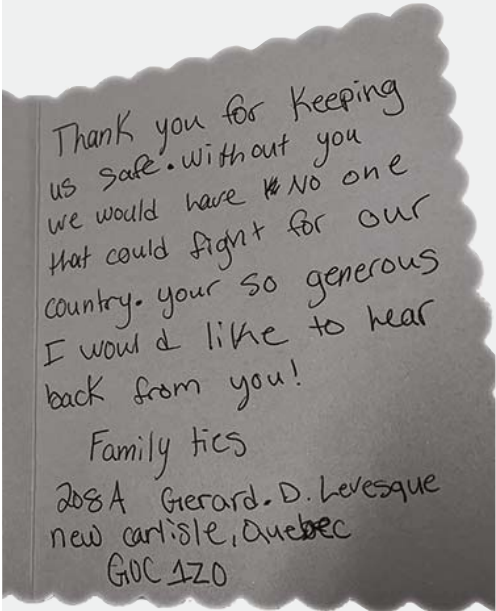 Thank you for Keeping
us safe. without you
we would have No one
that could fight for our
country. your so generous
I would like to hear
back from you!
Family ties
208A Gerard. D. Levesque
new carlisle, Quebec
G0C 1Z0